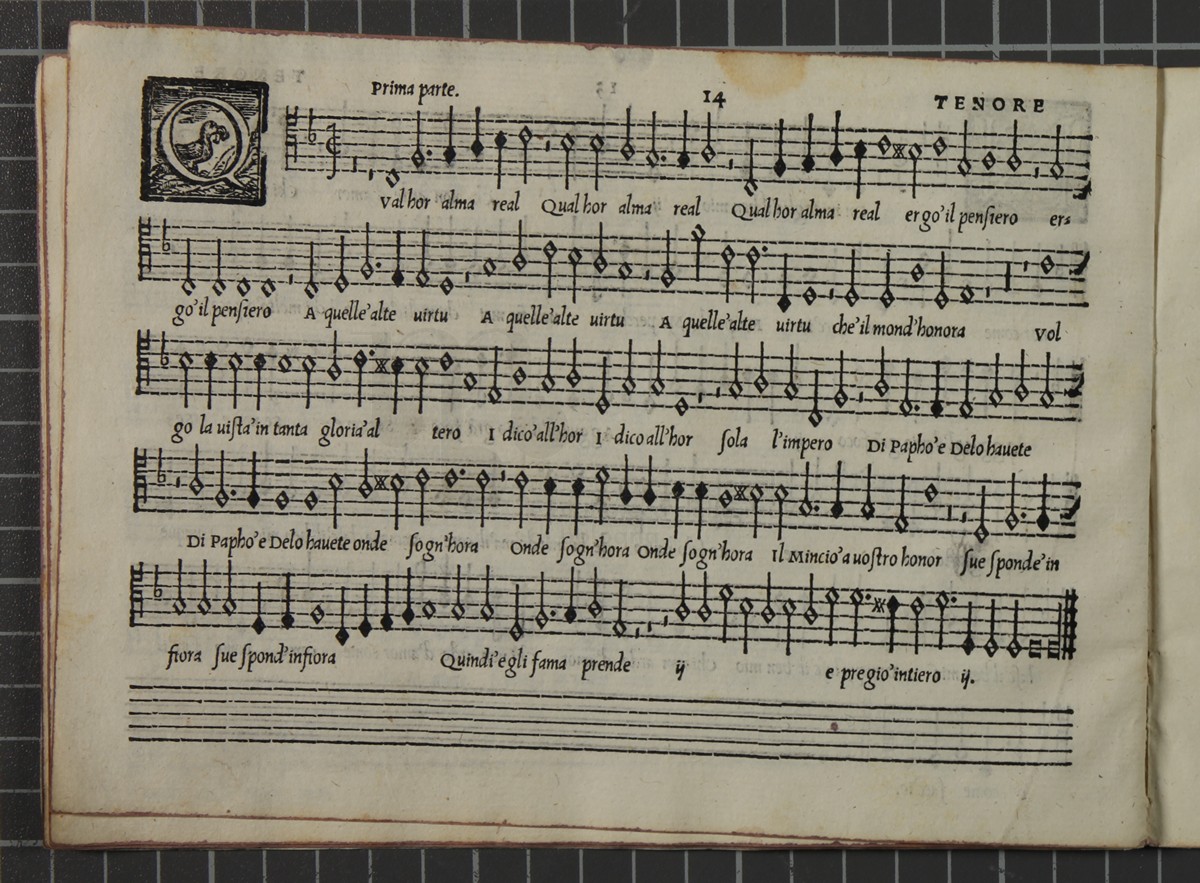 Prima parte. 14 TENORE
Q Val hor alma real Qual hor alma real Qual hor alma real ergo'il pensiero er=
go'il pensiero A quelle'alte uirtu A quelle'alte uirtu A quelle'alte uirtu che'il mond'honora Vol
go la uista'in tanta gloria'al tero I dico'all'hor I dico all'hor sola l'impero Di Papho'e Delo hauete
Di Papho'e Delo hauete onde sogn'hora Onde sogn'hora Onde sogn'hora Il Mincio'a uostro honor sue sponde'in
fiora sue spond'infiora Quindi'e gli fama prende ij e pregio'intiero ij.